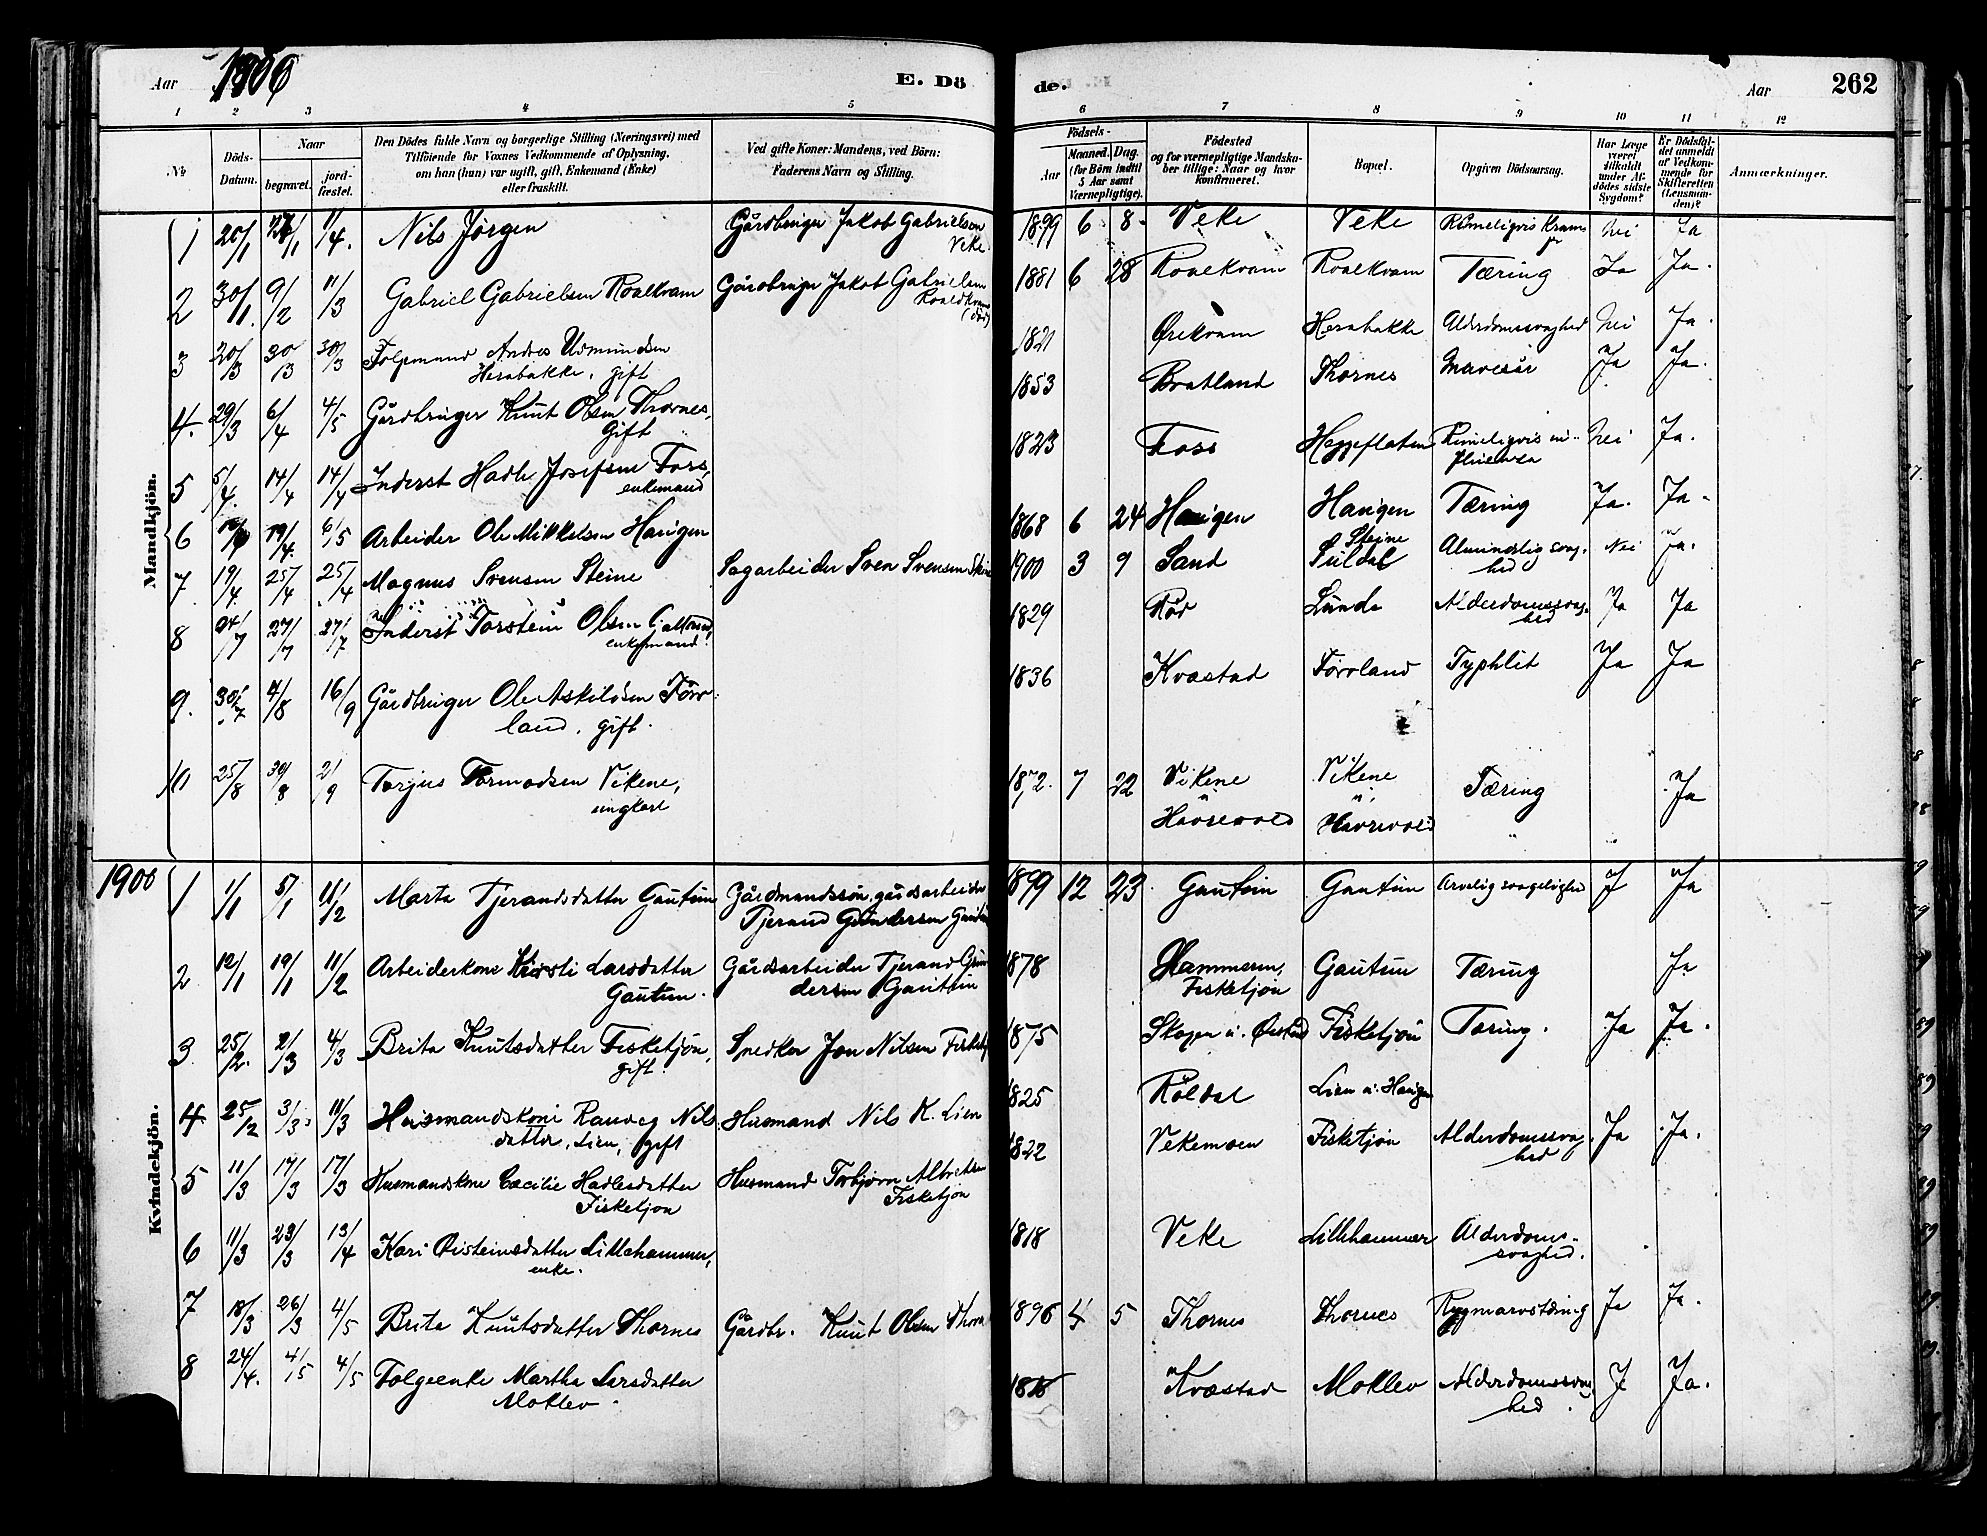 Aar 1900 E. Dö
de. Aar 262
1 2 3 4 5 6 7 8 9 10 11 12
No
Döds-Datum.
Naar
begravet.
jord-fæstet.
Den Dödes fulde Navn og borgerlige Stilling (Næringsvei) med
Tilföiende for Voxnes Vedkommende af Oplysning,
om han (hun) var ugift, gift, Enkemand (Enke)
eller fraskilt.
Ved gifte Koner: Mandens, ved Börn:
Faderens Navn og Stilling.
Födsels-
Aar
Maaned. Dag.
(for Börn indtil
5 Aar samt
Værnepligtige).
Födested
og for værnepligtige Mandska-
ber tillige: Naar og hvor
konfirmeret.
Bopæl.
Opgiven Dödsaarsag.
Har Læge
været
tilkaldt
under Af-
dödes sidste
Sygdom?
Er Dödsfal-
det anmeldt
af Vedkom-
mende for
Skifteretten
(Lensman-
den)?
Anmærkninger.
Mandkjön.
1 20/1 27/1 1/4. Nils Jörgen Gårdbruger Jakob Gabrielsen 1899 6 8 Veke Veke Rimeligvis Kramper Nei Ja
Veke.
2 30/1. 9/2 11/3 Gabriel Gabrielsen Roalkvam Gårdbruger Jakob Gabrielsen 1881 6 28 Roalkvam Roalkvam Tæring Ja Ja.
Roaldkvam
(död)
3 20/3 30/3 30/3 Folgemand Andres Usmundsen 1821 Ørekvam Herabakke Alderdomssvaghed Nei Ja.
Herabakke, gift
4. 29/3 6/4 4/5 Gårdbruger Knut Olsen Thornes, 1853 Bratland Thornes Mavesår Ja Ja.
Gift
5 5/4. 14/4 14/4 Inderst Hadle Josefsen Foss, 1823 Foss Heggeflaten Rimeligvis in- Nei Ja.
enkemand fluensa
6 19/4. 6/5 Arbeider Ole Mikkelsen Haugen 1868 6 24 Haugen Haugen Tæring Ja. Ja.
7 19/4. 25/4 25/4 Magnus Svensen Steine Sagarbeider Sven Svensen 1900 3 9 Sand Steine Suldal Almindelig svag- Nei Ja.
hed
8 24/7 27/7 27/7 Inderst Torstein Olsen 1829 Rød Lunde Alderdomssvag- Ja Ja
enkemand hed
9. 30/7 4/8 16/9 Gårdbruger Ole Askildsen Förr- 1836 Kvæstad Förrland Typhlit Ja Ja
land, gift.
10 25/8 30/8 2/9 Torjus Tormodsen Vikene, 1872. 7 22 Vikene Vikene Tæring Ja
ungkarl u. Havrevold u. Havrevold
1900
Kvindekjön.
1 1/1 5/1 11/2 Marta Tjerandsdatter Gautun Gårdmandssön, gårdsarbeider 1899 12 23. Gautun Gautun Arvelig svagelighed J Ja
Tjerand Gundersen
2 12/1 19/1 11/2 Arbeiderkone Kirsti Larsdatter Gårdsarbeider Tjerand Gun 1878 Hammeren, Gautun Tæring Ja
Gautun. dersen Gautun Fisketjön
3 25/2. 2/3 4/3 Brita Knutsdatter Fisketjön, Snedker Jon Nilsen 1875 Skogen u. Fisketjön Tæring. Ja Ja.
gift.
4. 25/2 3/3 11/3 Husmandskone Ranveg Nils Husmand Nils K. Lien 1825 Röldal Lien u. Haugen
datter, Lien, gift
5 11/3 17/3 17/3 Husmandskone Cæcilie Hadlesdatter Husmand Torbjörn Albretsen 1822 Vekemoen Fisketjön Alderdomssvag Ja Ja.
Fisketjon Fisketjon hed
6 11/3 23/3 13/4 Kari Øisteinsdatter Lillehammer, 1818 Veke Lillehammer Alderdoms-
enke. svaghed.
7 18/3 26/3 4/5 Brita Knutsdatter Thornes Gårdbr. Knut Olsen 1896 4 5 Thornes Thornes Rygmarvstæring Ja Ja.
8 24/4. 4/5 4/5 Folgeenke Martha Larsdatter Kvæstad Moklev Alderdomssvag J Ja.
Moklev. hed.